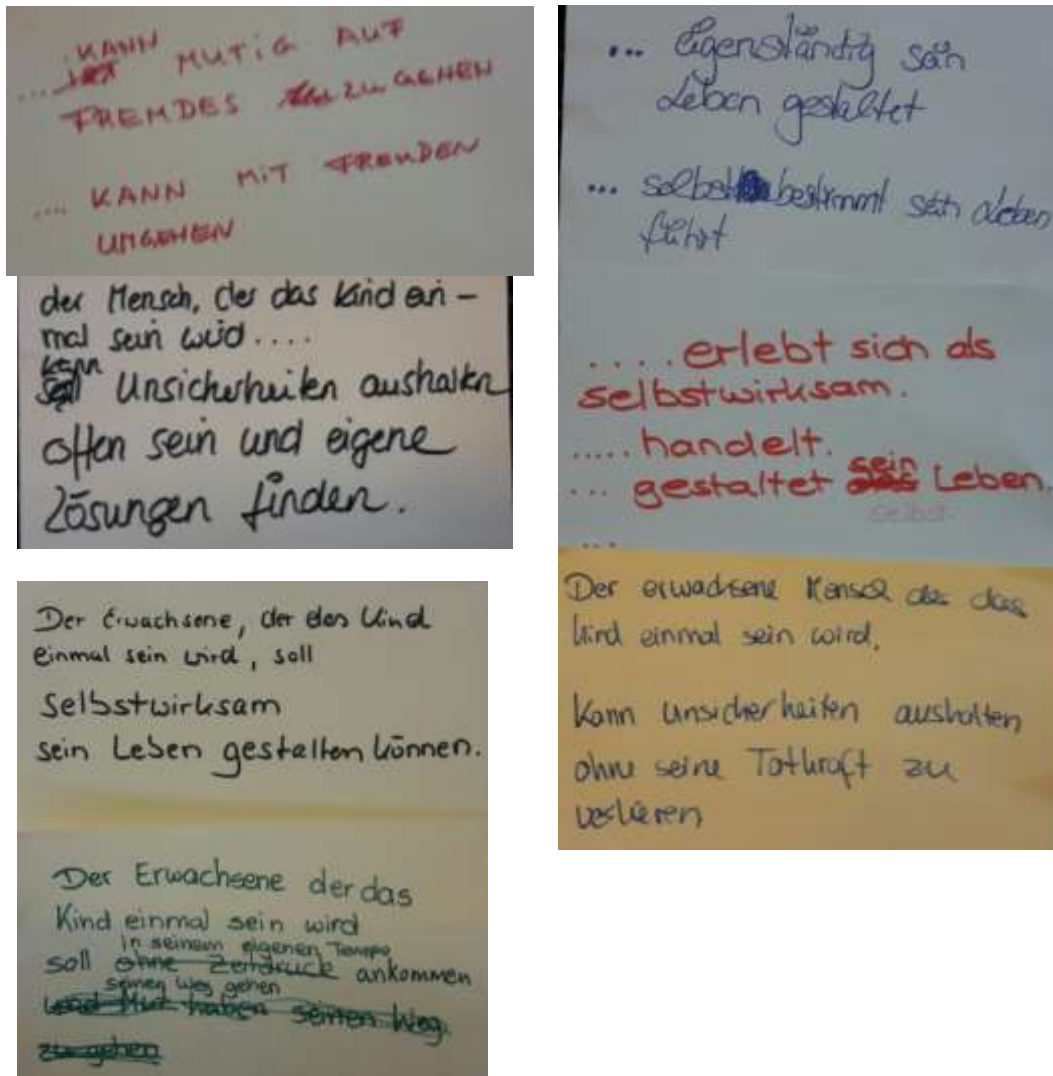 .... KANN MUTIG AUF
FREMDES ZUGEHEN
.... KANN MIT FREMDEN
UMGEHEN
der Mensch, der das Kind ein-
mal sein wird ....
kann Unsicherheiten aushalten
offen sein und eigene
Lösungen finden.
Der Erwachsene, der das Kind
einmal sein wird, soll
Selbstwirksam
sein Leben gestalten können.
Der Erwachsene der das
Kind einmal sein wird
in seinem eigenen Tempo
soll ohne Zeitdruck ankommen
seinen Weg gehen
und Mut haben seinen Weg
zu gehen
... eigenständig sein
Leben gestaltet
... selbstbestimmt sein Leben
führt
.... erlebt sich als
selbstwirksam.
..... handelt.
sein
... gestaltet das Leben.
selbst.
...
Der erwachsene Mensch der das
Kind einmal sein wird,
kann Unsicherheiten aushalten
ohne seine Tatkraft zu
verlieren